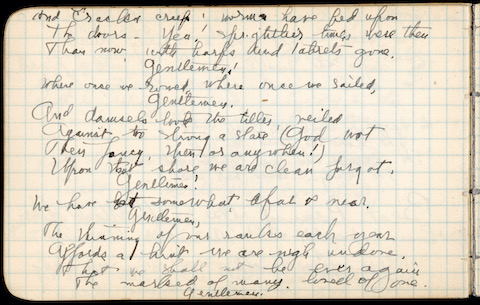 And cracks creep; worms have fed upon
The doors. Yea, sprightlier times were then
Than now, with harps and tabrets gone,
Gentlemen!
Where once we rowed, where once we sailed,
Gentlemen,
And damsels took the tiller, veiled
Against too strong a stare (God wot
Their fancy, then or anywhen!)
Upon that shore we are clean forgot,
Gentlemen!
We have lost somewhat afar & near,
Gentlemen,
The thinning of our ranks each year
Affords a hint we are nigh undone,
That we shall not be ever again
The marked of many, loved of one,
Gentlemen.